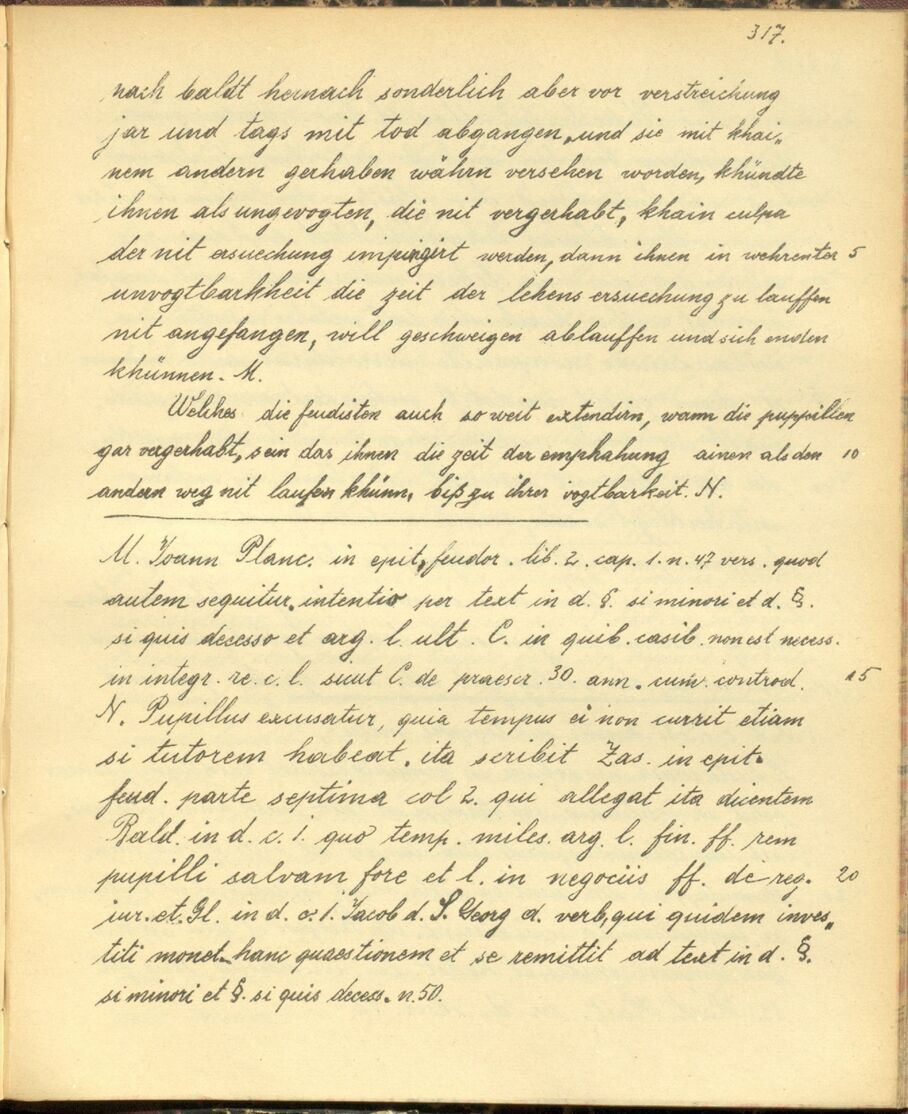 317.
nach baldt hernach sonderlich aber vor verstreichung
jar und tags mit tod abgangen, und sie mit khai„
nem andern gerhaben währn versehen worden, khündte
ihnen als ungevogten, die nit vergerhabt, khain culpa
der nit ersuechung impingirt werden, dann ihnen in wehrenter 5
unvogtbarkheit die zeit der lehens ersuechung zu lauffen
nit angefangen, will geschweigen ablauffen und sich enden
khünnen. M.
Welches die feudisten auch so weit extendirn, wann die puppillen
gar vergerhabt, sein das ihnen die zeit der emphahung ainen als den 10
andern weg nit laufen khünn, biß zu ihrer vogtbarkeit. N.
M. Joann Planc. in epit. feudor. lib. 2. cap. 1. n. 47 vers. quod
autem sequitur. intentio per text in d. §. si minori et d. §.
si quis decesso et arg. l. ult. C. in quib. casib. non est necess.
in integr. re. c. l. sicut C. de praescr. 30. ann. cum. controd. 15
N. Pupillus excusatur, quia tempus ei non currit etiam
si tutorem habeat. ita scribit Zas. in epit.
feud. parte septima col 2. qui allegat ita dicentem
Bald. in d. c. 1. quo temp. miles. arg. l. fin. ff. rem
pupilli salvam fore et l. in negociis ff. de reg. 20
iur. et. Gl. in d. c. 1. Jacob d. S. Georg d. verb, qui quidem inves„
titi monet. hanc quaestionem et se remittit ad text in d. §.
si minori et §. si quis decess. n. 50.